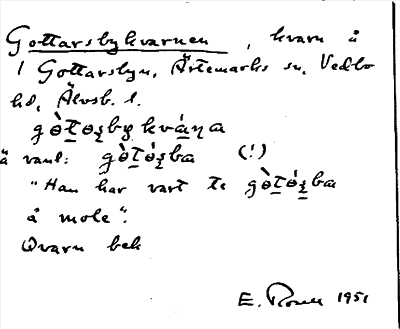 Gottarsbykvarnen, kvarn å
/ Gottarsbyn, Ärtemarks sn, Vedbo
hd, Älvsb. l.
gò̱t̠ɵʂby kvá̠ɳa
ä vanl: gò̱t̠ɵ́ʂba (!)
"Han har vart te gò̱t̠ɵ́ʂba
å mole".
Qvarn bek
E. 1951